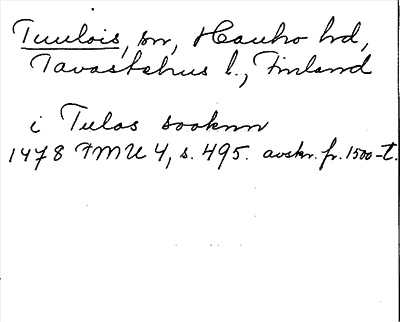 Tuulois, sn, Hauho hd,
Tavastehus l., Finland
i Tulos sooknn
1478 FMU 4, s. 495. avskr. fr. 1500-t.